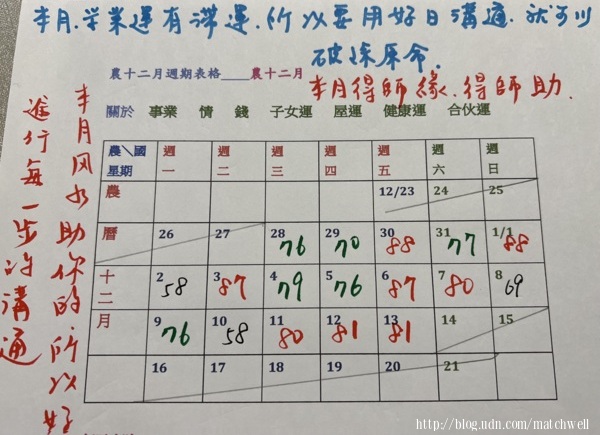 本月.学業運有滞運.所以要用好日溝通.就可以
破除原命.
農十二月週期表格____農十二月
本月得師緣.得師助.
關於 事業 情 錢 子女運 屋運 健康運 合伙運
農＼國 週 週 週 週 週 週 週
星期 一 二 三 四 五 六 日
農 12/23 24 25
曆 26 27 28 29 30 31 1/1
76 70 88 77 88
十二 2 3 4 5 6 7 8
58 87 79 76 87 80 69
月 9 10 11 12 13 14 15
76 58 80 81 81
16 17 18 19 20 21
本月风水助你的所以好
進行每一步的溝通
http://blog.udn.com/matchwell